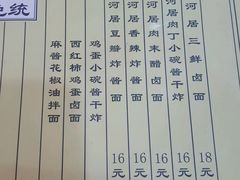 河居三鲜卤面 18元
河居肉丁小碗酱干炸 16元
河居肉末醋卤面 16元
河居香辣炸酱面 16元
河居豆瓣炸酱面 16元
鸡蛋小碗酱干炸
西红柿鸡蛋卤面
麻酱花椒油拌面
统